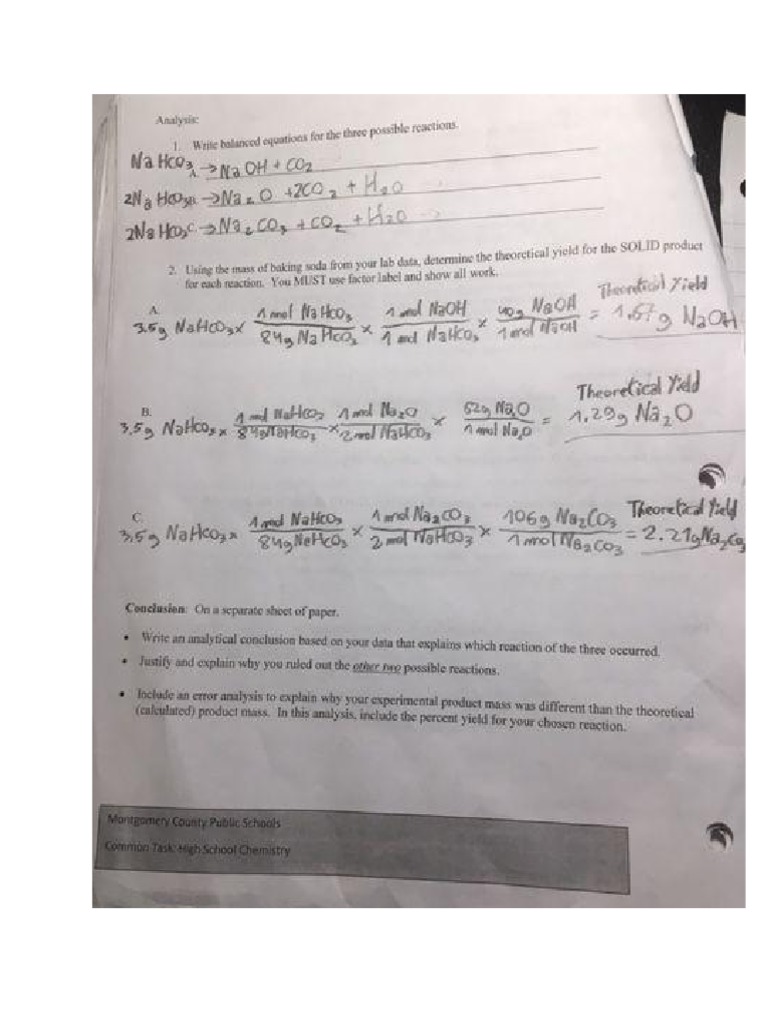 Analysis:
1. Write balanced equations for the three possible reactions.
NaHCO3 A. → NaOH + CO2
2NaHCO3 B. → Na2O + 2CO2 + H2O
2NaHCO3 C. → Na2CO3 + CO2 + H2O
2. Using the mass of baking soda from your lab data, determine the theoretical yield for the SOLID product
for each reaction. You MUST use factor label and show all work.
A.
Theoretical Yield
3.5g NaHCO3 x 1 mol NaHCO3 / 84g NaHCO3 x 1 mol NaOH / 1 mol NaHCO3 x 40g NaOH / 1 mol NaOH = 1.67g NaOH
B.
Theoretical Yield
3,5g NaHCO3 x 1 mol NaHCO3 / 84g NaHCO3 x 1 mol Na2O / 2 mol NaHCO3 x 62g Na2O / 1 mol Na2O = 1.29g Na2O
C.
Theoretical Yield
3,5g NaHCO3 x 1 mol NaHCO3 / 84g NaHCO3 x 1 mol Na2CO3 / 2 mol NaHCO3 x 106g Na2CO3 / 1 mol Na2CO3 = 2.21g Na2CO3
Conclusion: On a separate sheet of paper.
• Write an analytical conclusion based on your data that explains which reaction of the three occurred.
• Justify and explain why you ruled out the other two possible reactions.
• Include an error analysis to explain why your experimental product mass was different than the theoretical
(calculated) product mass. In this analysis, include the percent yield for your chosen reaction.
Montgomery County Public Schools
Common Task: High School Chemistry